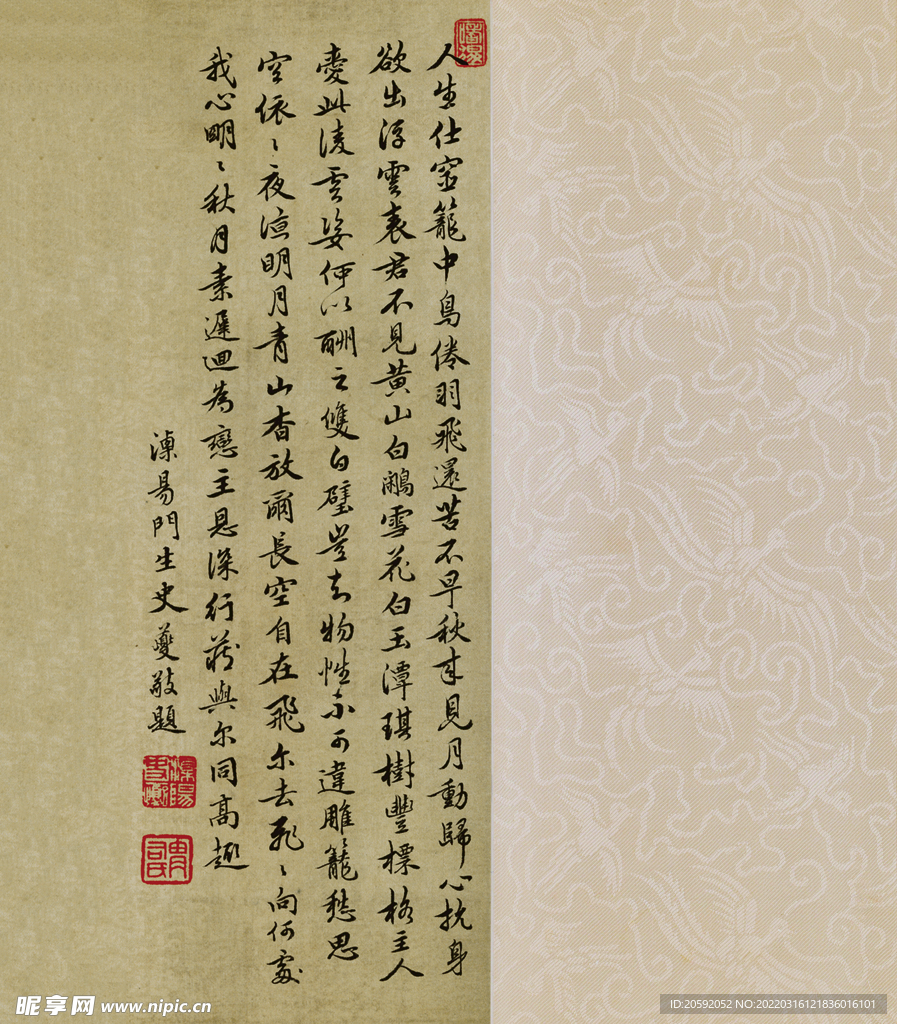 人生仕宦籠中鳥倦羽飛還苦不早秋來見月動歸心抗身
欲出浮雲表君不見黃山白鷴雪花白玉潭琪樹豐標格主人
愛此淩雲姿何以酬之雙白璧豈知物性不可違雕籠愁思
空依〻夜涼明月青山杳放爾長空自在飛尔去飛〻向何處
我心明〻秋月素遲迴為戀主恩深行藏與尔同高趣
溧易門生史夔敬題
昵享网 www.nipic.cn
ID:20592052 NO:20220316121836016101